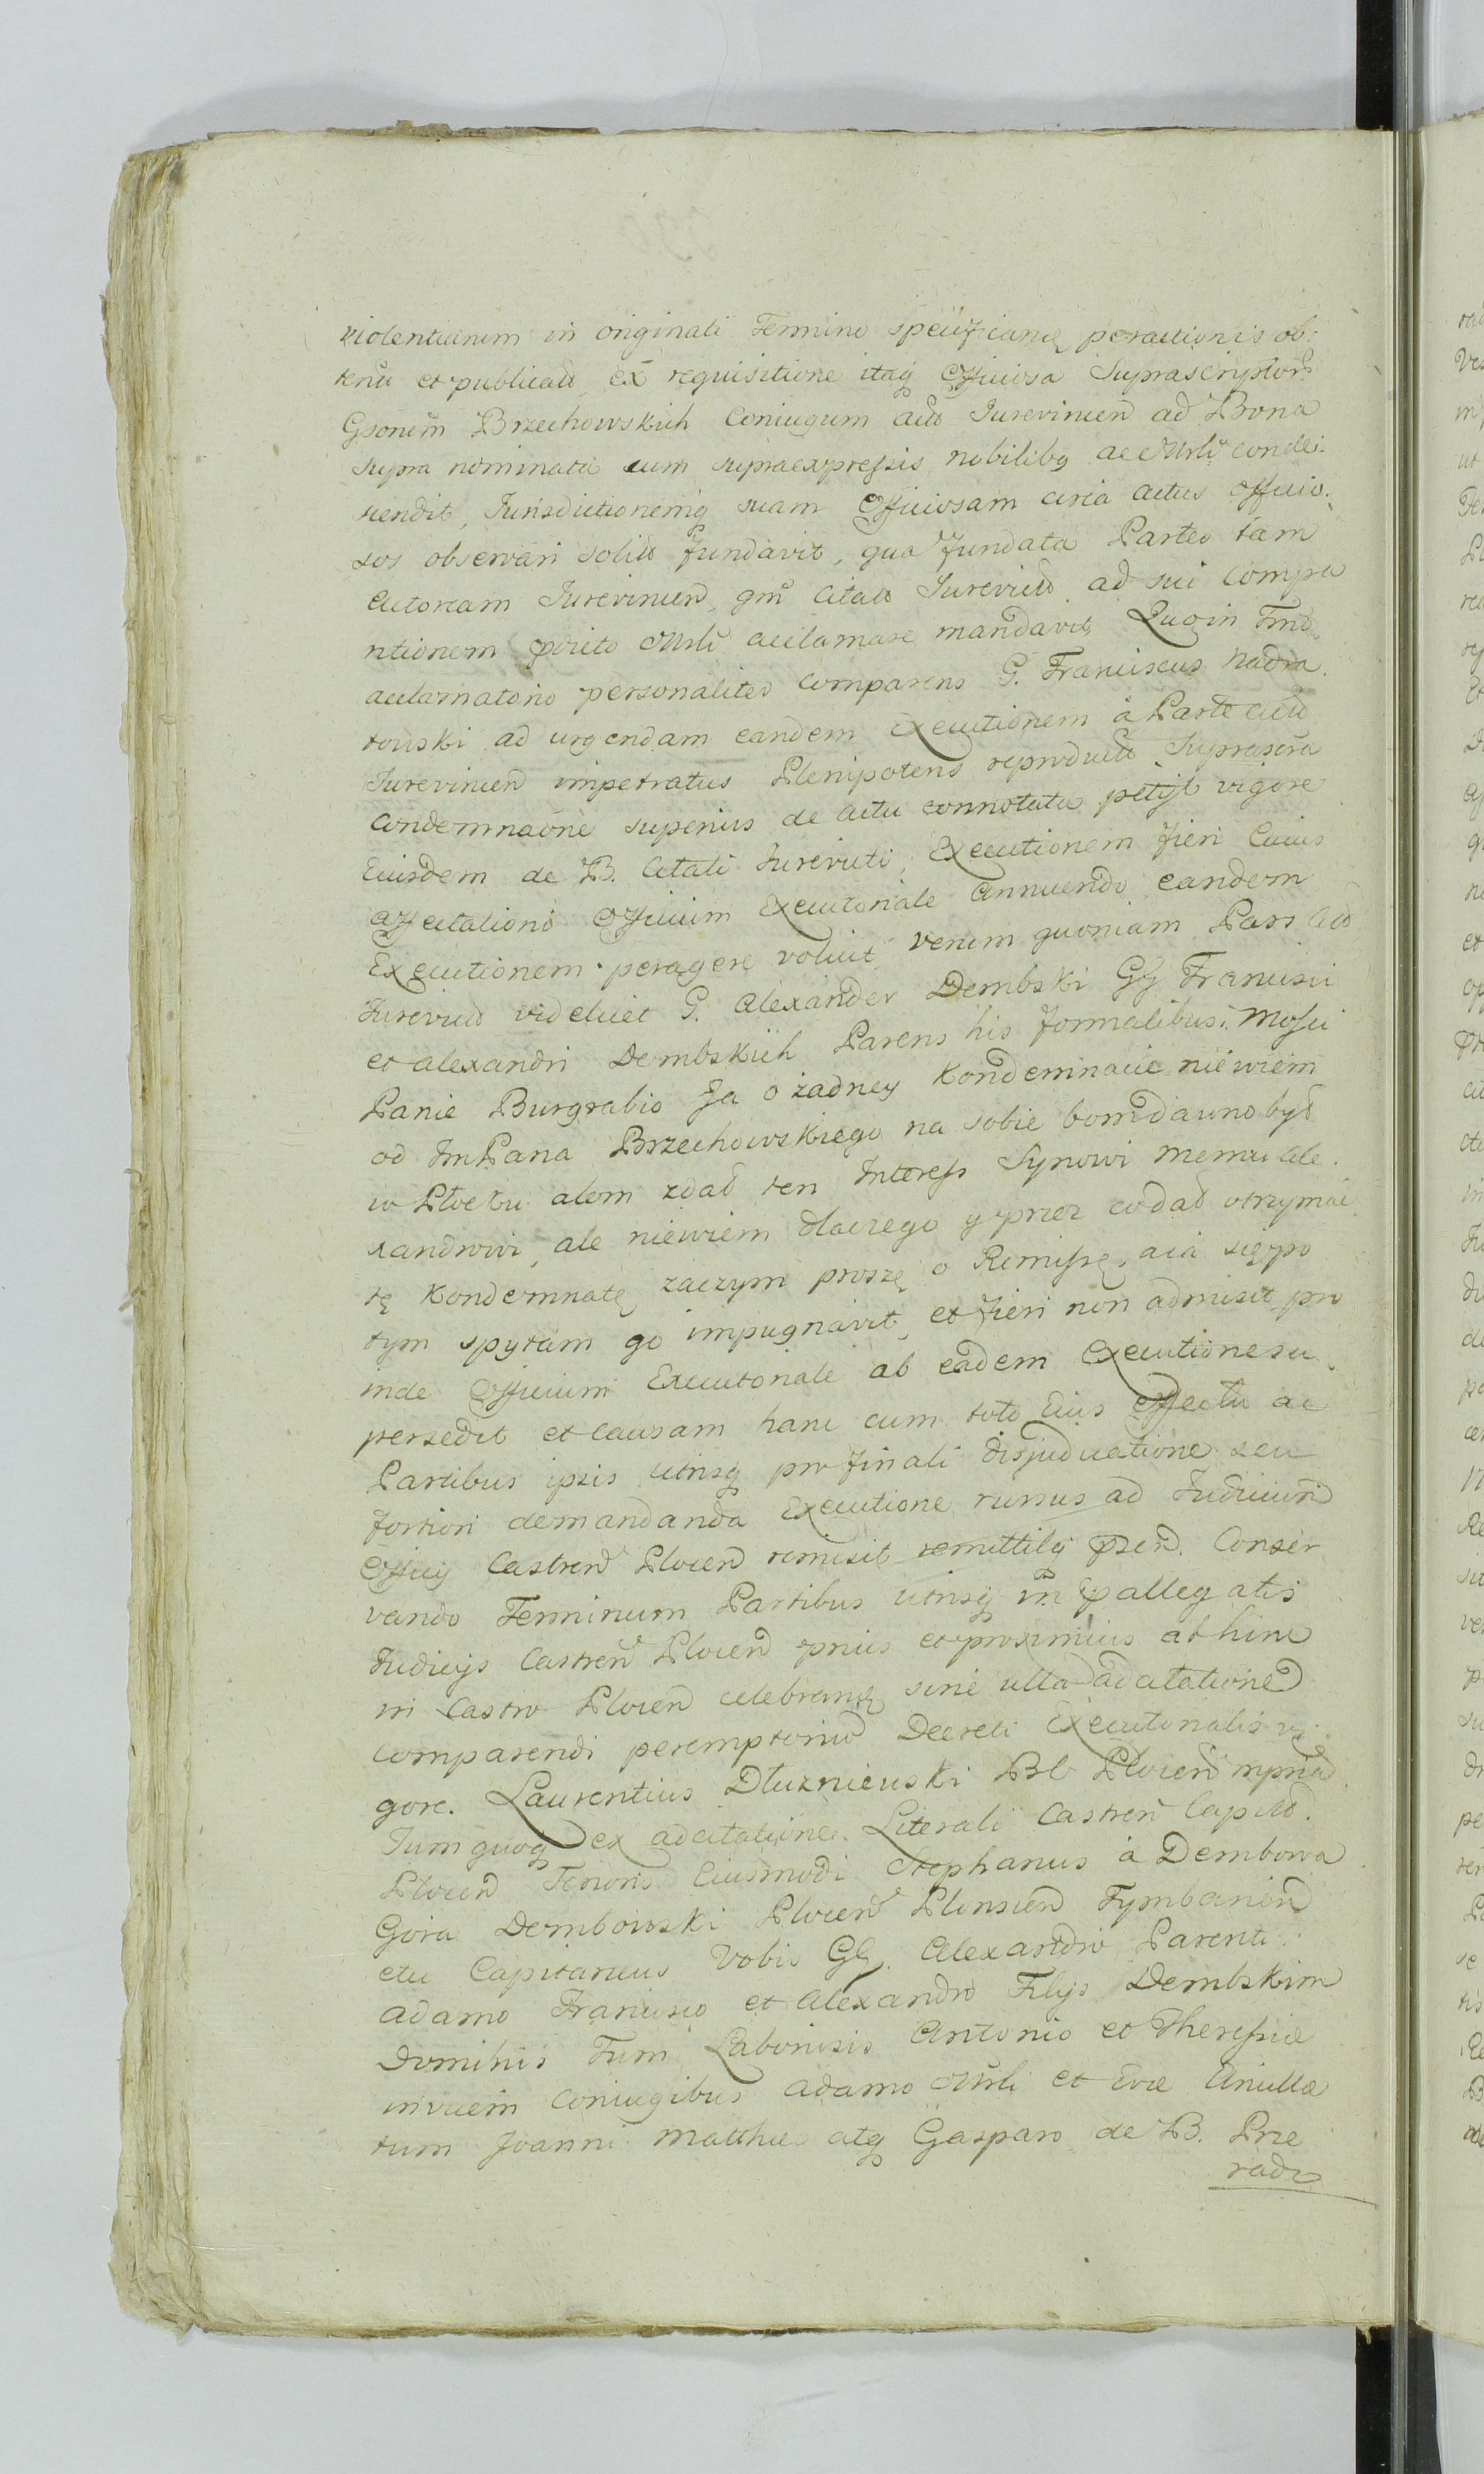 violentiarum in originali Termino specificanę peractionis ob-
tenta et publicata, ex requisitione itaq Officiosa Suprascriptor
Gsorum Brzechowskich Coniugum acto Jurevincen ad Bona
supra nominata cum supraexpressis nobilibq ac Mrli conde-
scendit, Jurisdictionemq suam Officiosam circa actus officio-
sos observari solito fundavit, qua fundata Partes tam
Actoream Jurevincen, qm Citato Jurevicto ad sui Compa
ritionem pdicto Mrli acclamare mandavit, Quo in Tmo
acclamatorio personaliter comparens G. Franciscus Nadra-
towski ad urgendam eandem Executionem à Parte acto
Jurevincen impetratus Plenipotens reproducto Suprascra
Condemnaone superius de actu connotata petijt vigore
Eiusdem de B. Citati Jurevicti, Executionem fieri Cuius
affectationi Officium Executoriale annuendo eandem
Executionem peragere voluit verum quoniam Pars Cito
Jurevicto videlicet G. Alexander Dembski GG Francisci
et Alexandri Dembskich Parens his formalibus: Mosci
Panie Burgrabio Ja o żadney Kondemnacie niewiem
od Jm Pana Brzechowskiego na sobie bom dawno był
w Płocku alem zdał ten Interess Synowi memu Ale-
xandrowi, ale niewiem dlaczego y przez co dał otrzymać
tę Kondemnatę zaczym proszę o Remissę, a ia się po
tym spytam go impugnavit, et fieri non admisit pro
inde Officium Executoriale ab eadem Executione su-
persedit et Causam hanc cum toto Eius Effectu ac
Partibus ipsis utrisq pro finali disjudicatione seu
fortiori demandanda Executione rursus ad Judicium
Officij Castren Plocen remisit remittitq psen. Conser-
vando Terminum Partibus utrisq in pallegatis
Judicijs Castren Plocen prius et proximius abhinc
in Castro Plocen celebranę sine ulla adcitatione
Comparendi peremptorium Decreti Executorialis vi-
gore. Laurentius Dłuzniewski Bb Plocen mpria
Tum quoq ex adcitatione Literali Castren Capitli
Plocen Tenoris Eiusmodi Stephanus à Dembowa
Gora Dembowski Plocen Plonscen Tymbarien
etc Capitaneus Vobis GG. Alexandro Parenti
Adamo Francisco et Alexandro Filijs Dembskim
Dominis Tum Laboriosis Antonio et Theressiæ
invicem Coniugibus Adamo Mrli et Evæ Ancillæ
tum Joanni Matthiæ atq Gasparo de B. Prze
radz